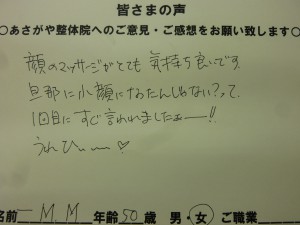 皆さまの声
○あさがや整体院へのご意見・ご感想をお願い致します○
顔のマッサージがとても気持ち良いです。
旦那に小顔になったんじゃない?って、
1回目にすぐ言われましたぁー!!
うれひぃー♡
名前 M.M 年齢 50歳 男・女 ご職業